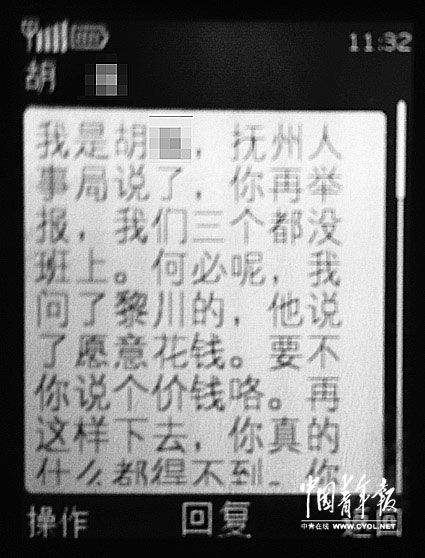 11:32
胡
我是胡 ，抚州人
事局说了，你再举
报，我们三个都没
班上。何必呢，我
问了黎川的，他说
了愿意花钱。要不
你说个价钱咯。再
这样下去，你真的
什么都得不到。你
中国青年报
中青在线 WWW.CYOL.NET
操作 回复 返回